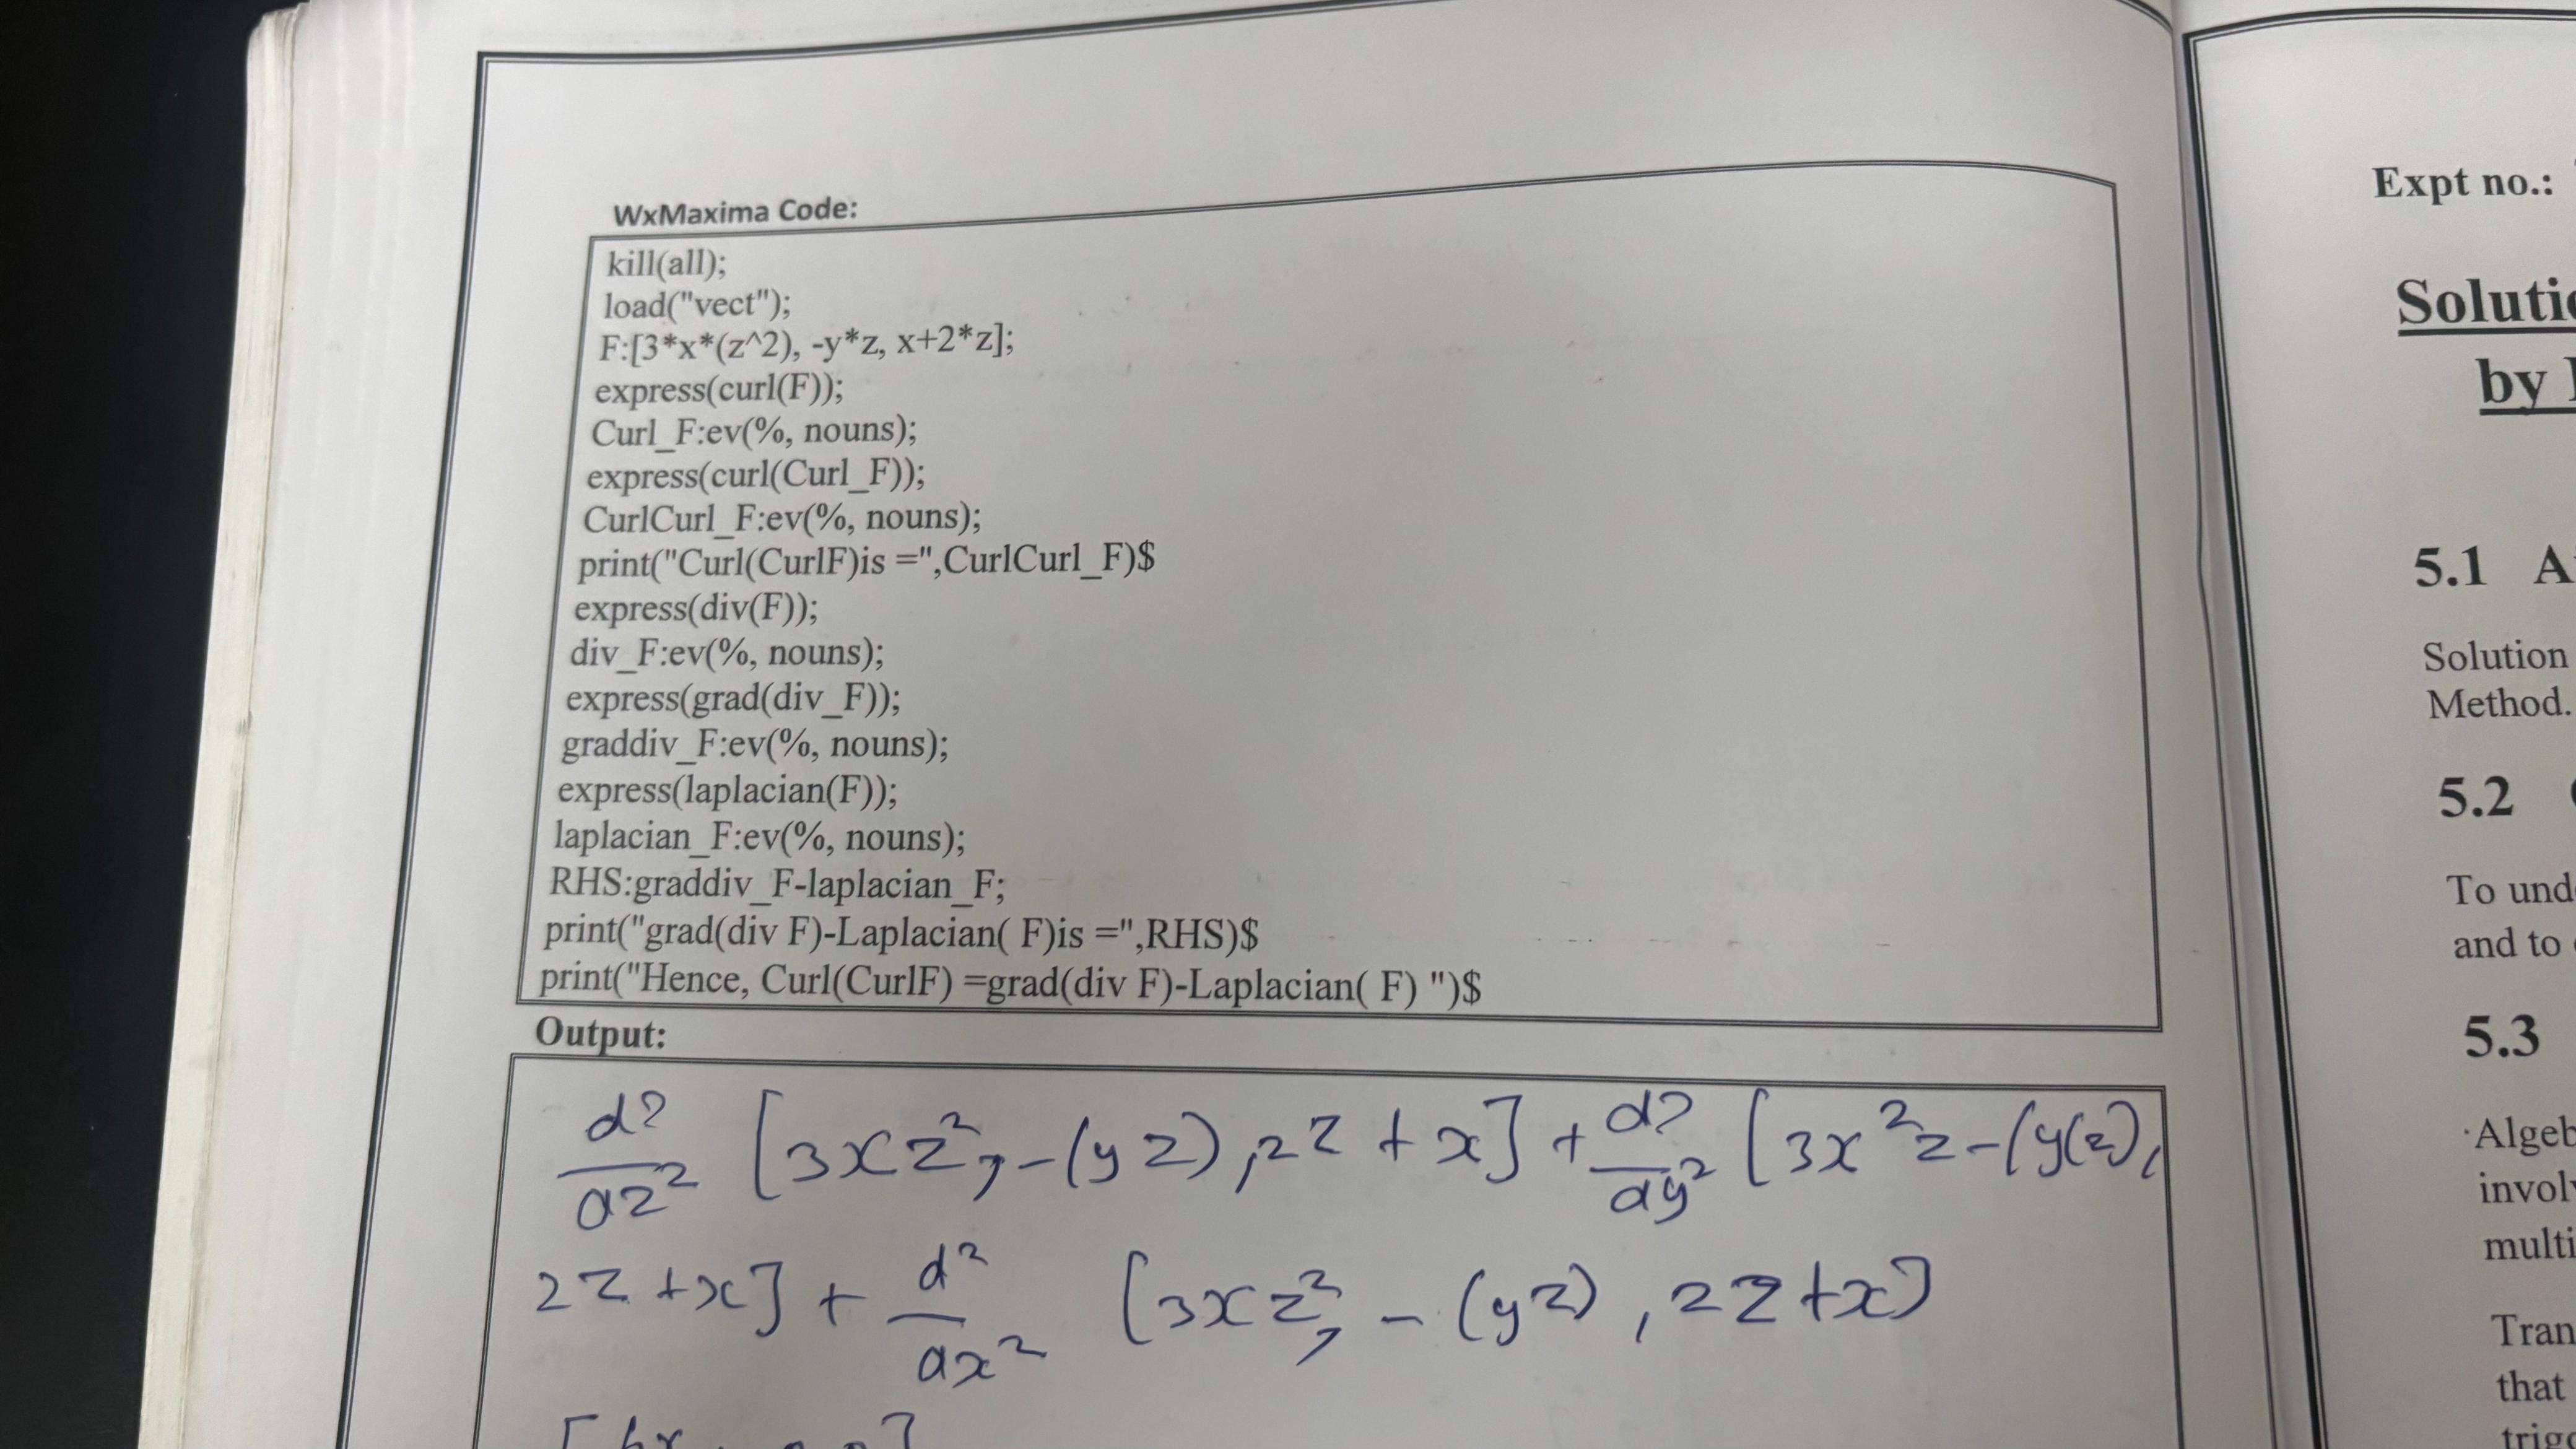 WxMaxima Code:
kill(all);
load("vect");
F:[3*x*(z^2), -y*z, x+2*z];
express(curl(F));
Curl_F:ev(%, nouns);
express(curl(Curl_F));
CurlCurl_F:ev(%, nouns);
print("Curl(CurlF)is =",CurlCurl_F)$
express(div(F));
div_F:ev(%, nouns);
express(grad(div_F));
graddiv_F:ev(%, nouns);
express(laplacian(F));
laplacian_F:ev(%, nouns);
RHS:graddiv_F-laplacian_F;
print("grad(div F)-Laplacian( F)is =",RHS)$
print("Hence, Curl(CurlF) =grad(div F)-Laplacian( F) ")$
Output:
d²/dz² [3xz², -(yz), 2z + x] + d²/dy² [3x²z -(y(z),
2z + x] + d²/dx² [3xz², -(yz), 2z+x]
Expt no.:
by
5.1
Solution
Method.
5.2
To und
and to
5.3
Algeb
involv
multi
Tran
that